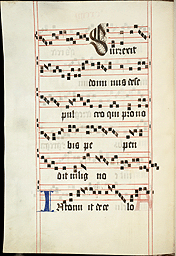 Surrexit
dominus de se
pulcro qui pro no
bis pe pen
dit in lig no
Intonuit de ce lo